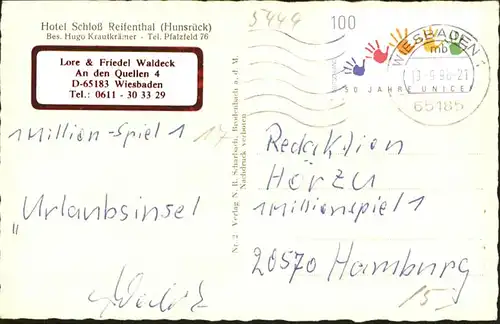 Hotel Schloß Reifenthal (Hunsrück)
Bes. Hugo Krautkrämer - Tel. Pfalzfeld 76
Lore & Friedel Waldeck
An den Quellen 4
D-65183 Wiesbaden
Tel.: 0611 - 30 33 29
Million-Spiel 1 17
"Urlaubsinsel
Nr. 2 Verlag N. B. Scharbach, Brodenbach a. d. M.
Nachdruck verboten
5444
100
50 JAHRE UNICEF
WIESBADEN 1
mb
-21
65185
Redaktion
Hörzu
Millionspiel 1
20570 Hamburg
15